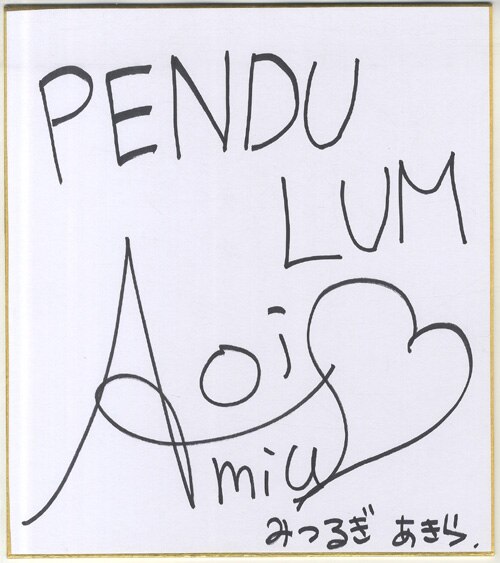 PENDU
LUM
Aoi
miu
みつるぎ あきら.